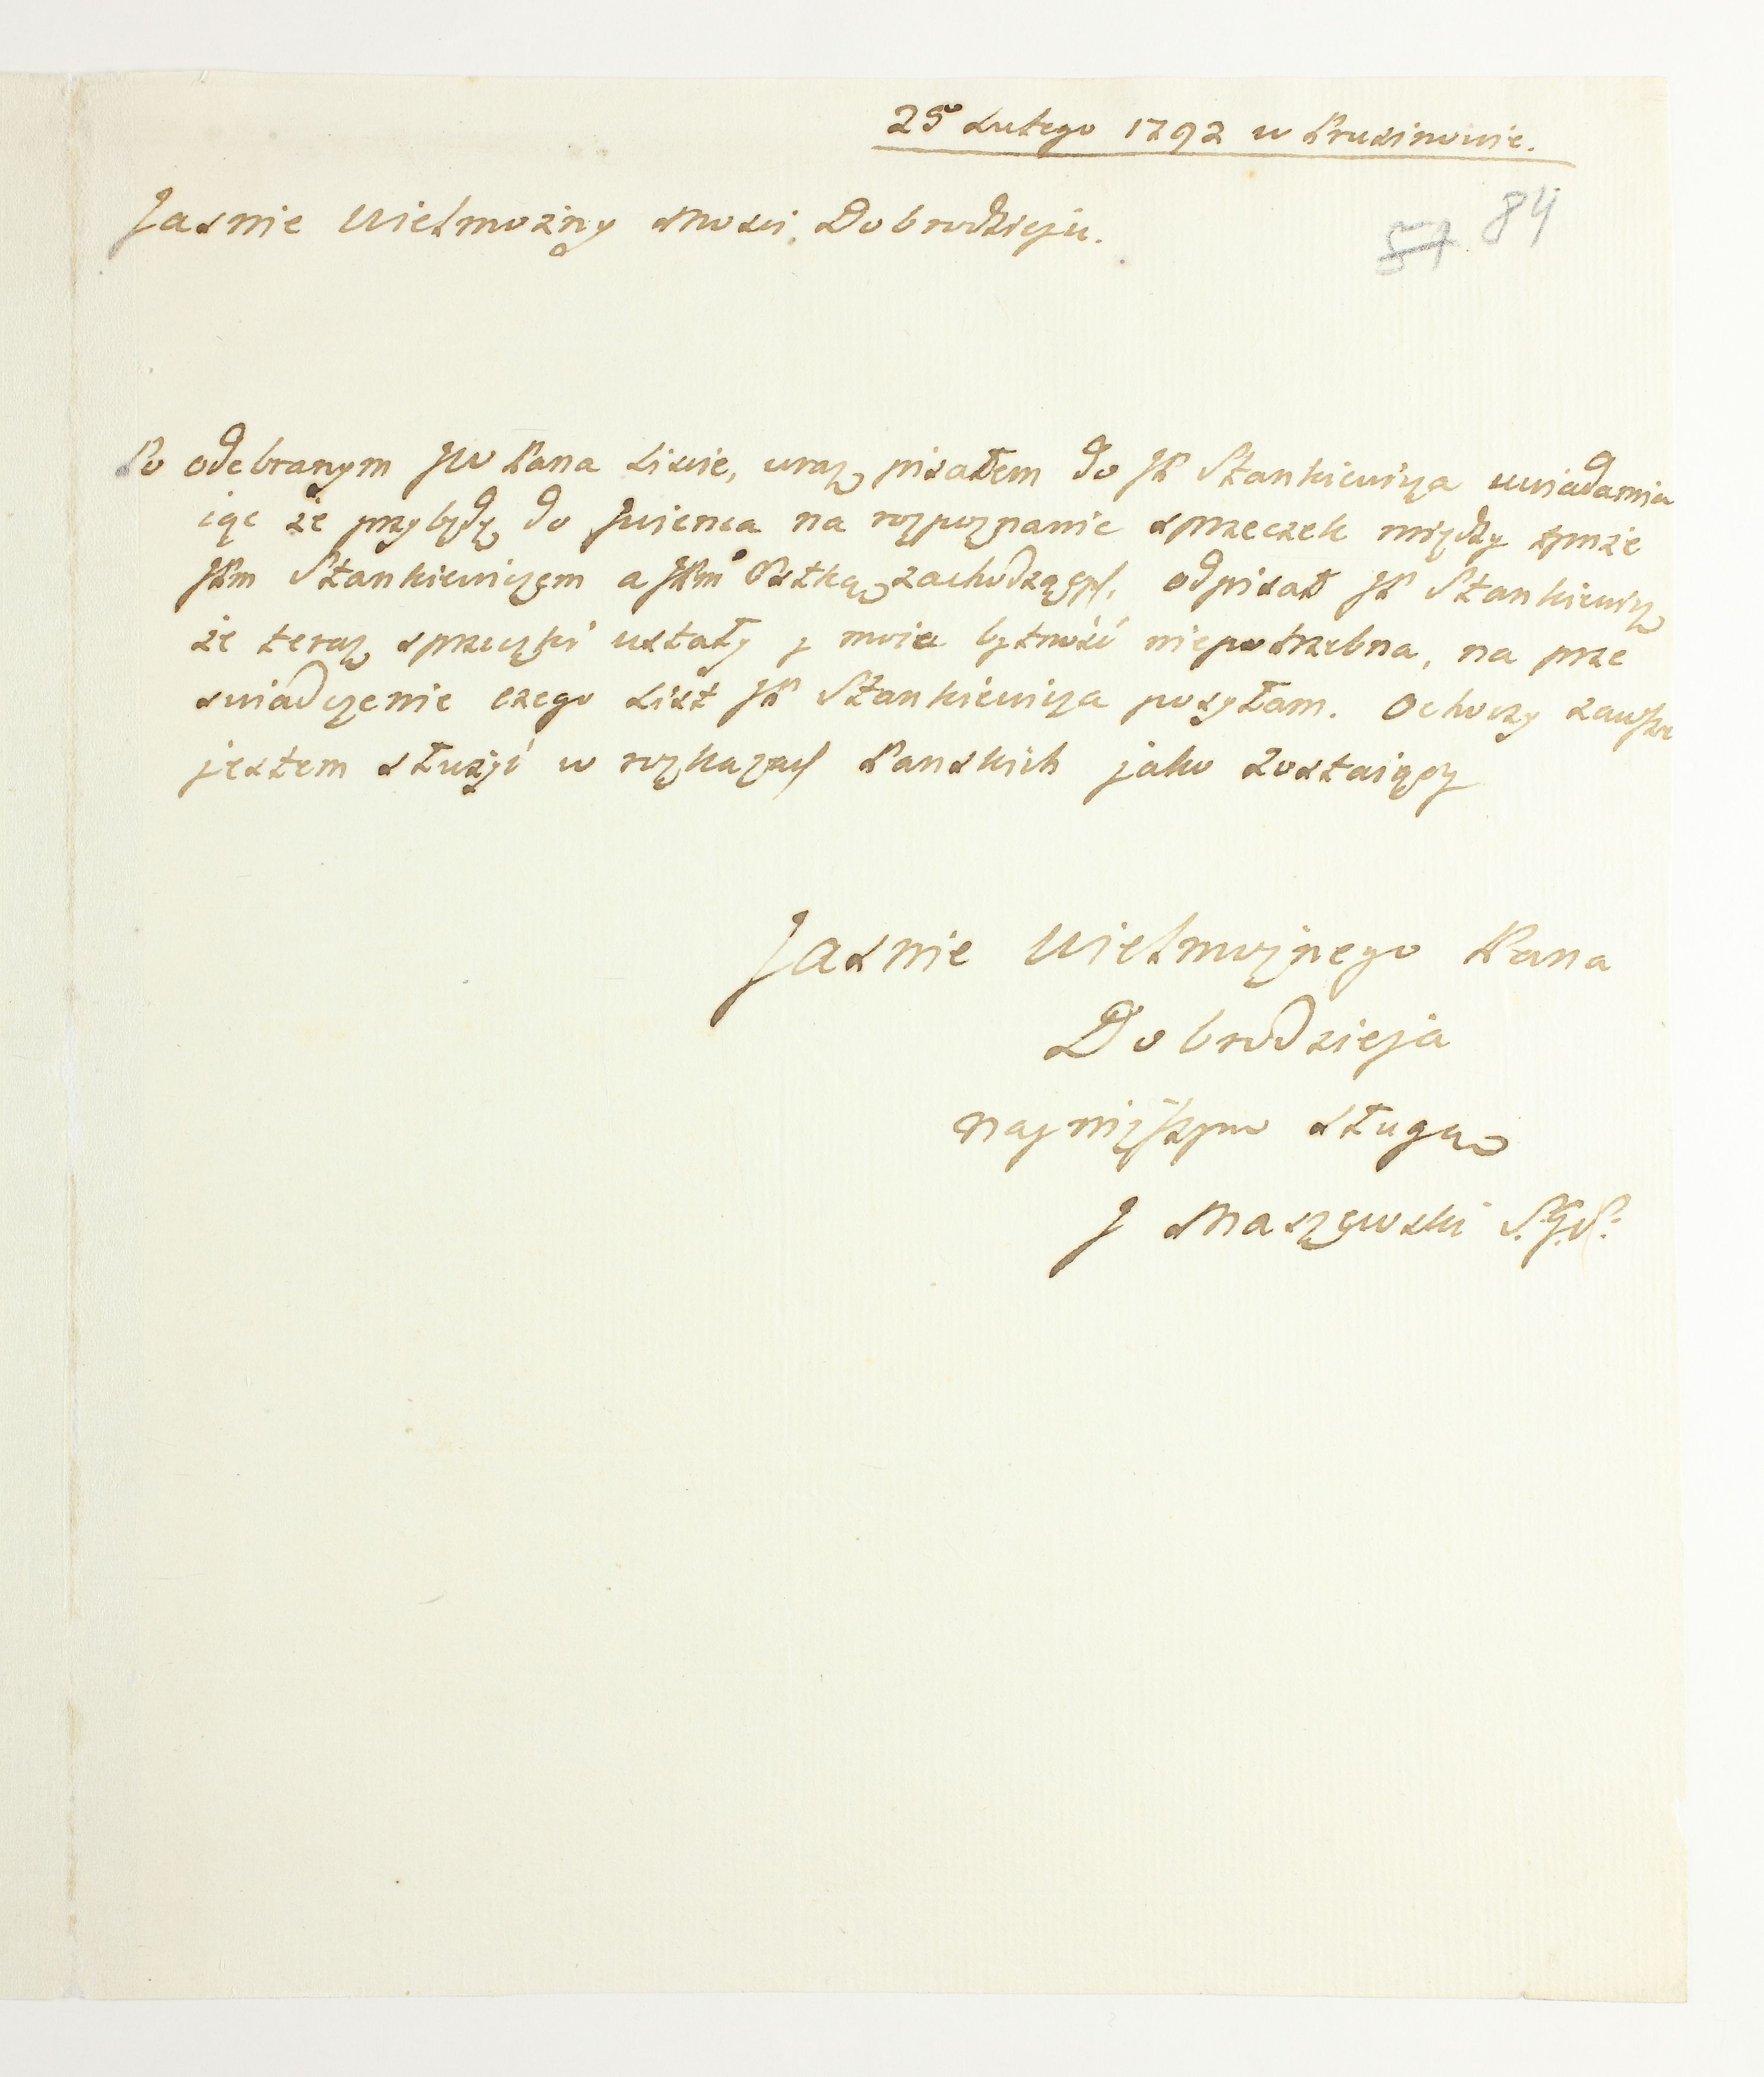 25 Lutego 1792 w Prusinowie.
Jasnie Wielmozny Mosci Dobrodzieju.
84
Po odebranym JW Pana Liscie, uraz pisałem do JP Stankiewicza uwiadamia
iąc że przybędę do Jwienca na rozpoznanie sprzeczek między tymże
JPm Stankiewiczem a JPm zachodzących, odpisał JP Stankiewicz
że teraz sprzeczki ustały y moia bytność niepotrzebna, na prze
swiadczenie czego List JP Stankiewicza posyłam. Ochoczy zawsze
jestem służyć w rozkazach Panskich jako zostaiący
Jasnie Wielmoznego Pana
Dobrodzieja
najniższym sługą
J Maszewski